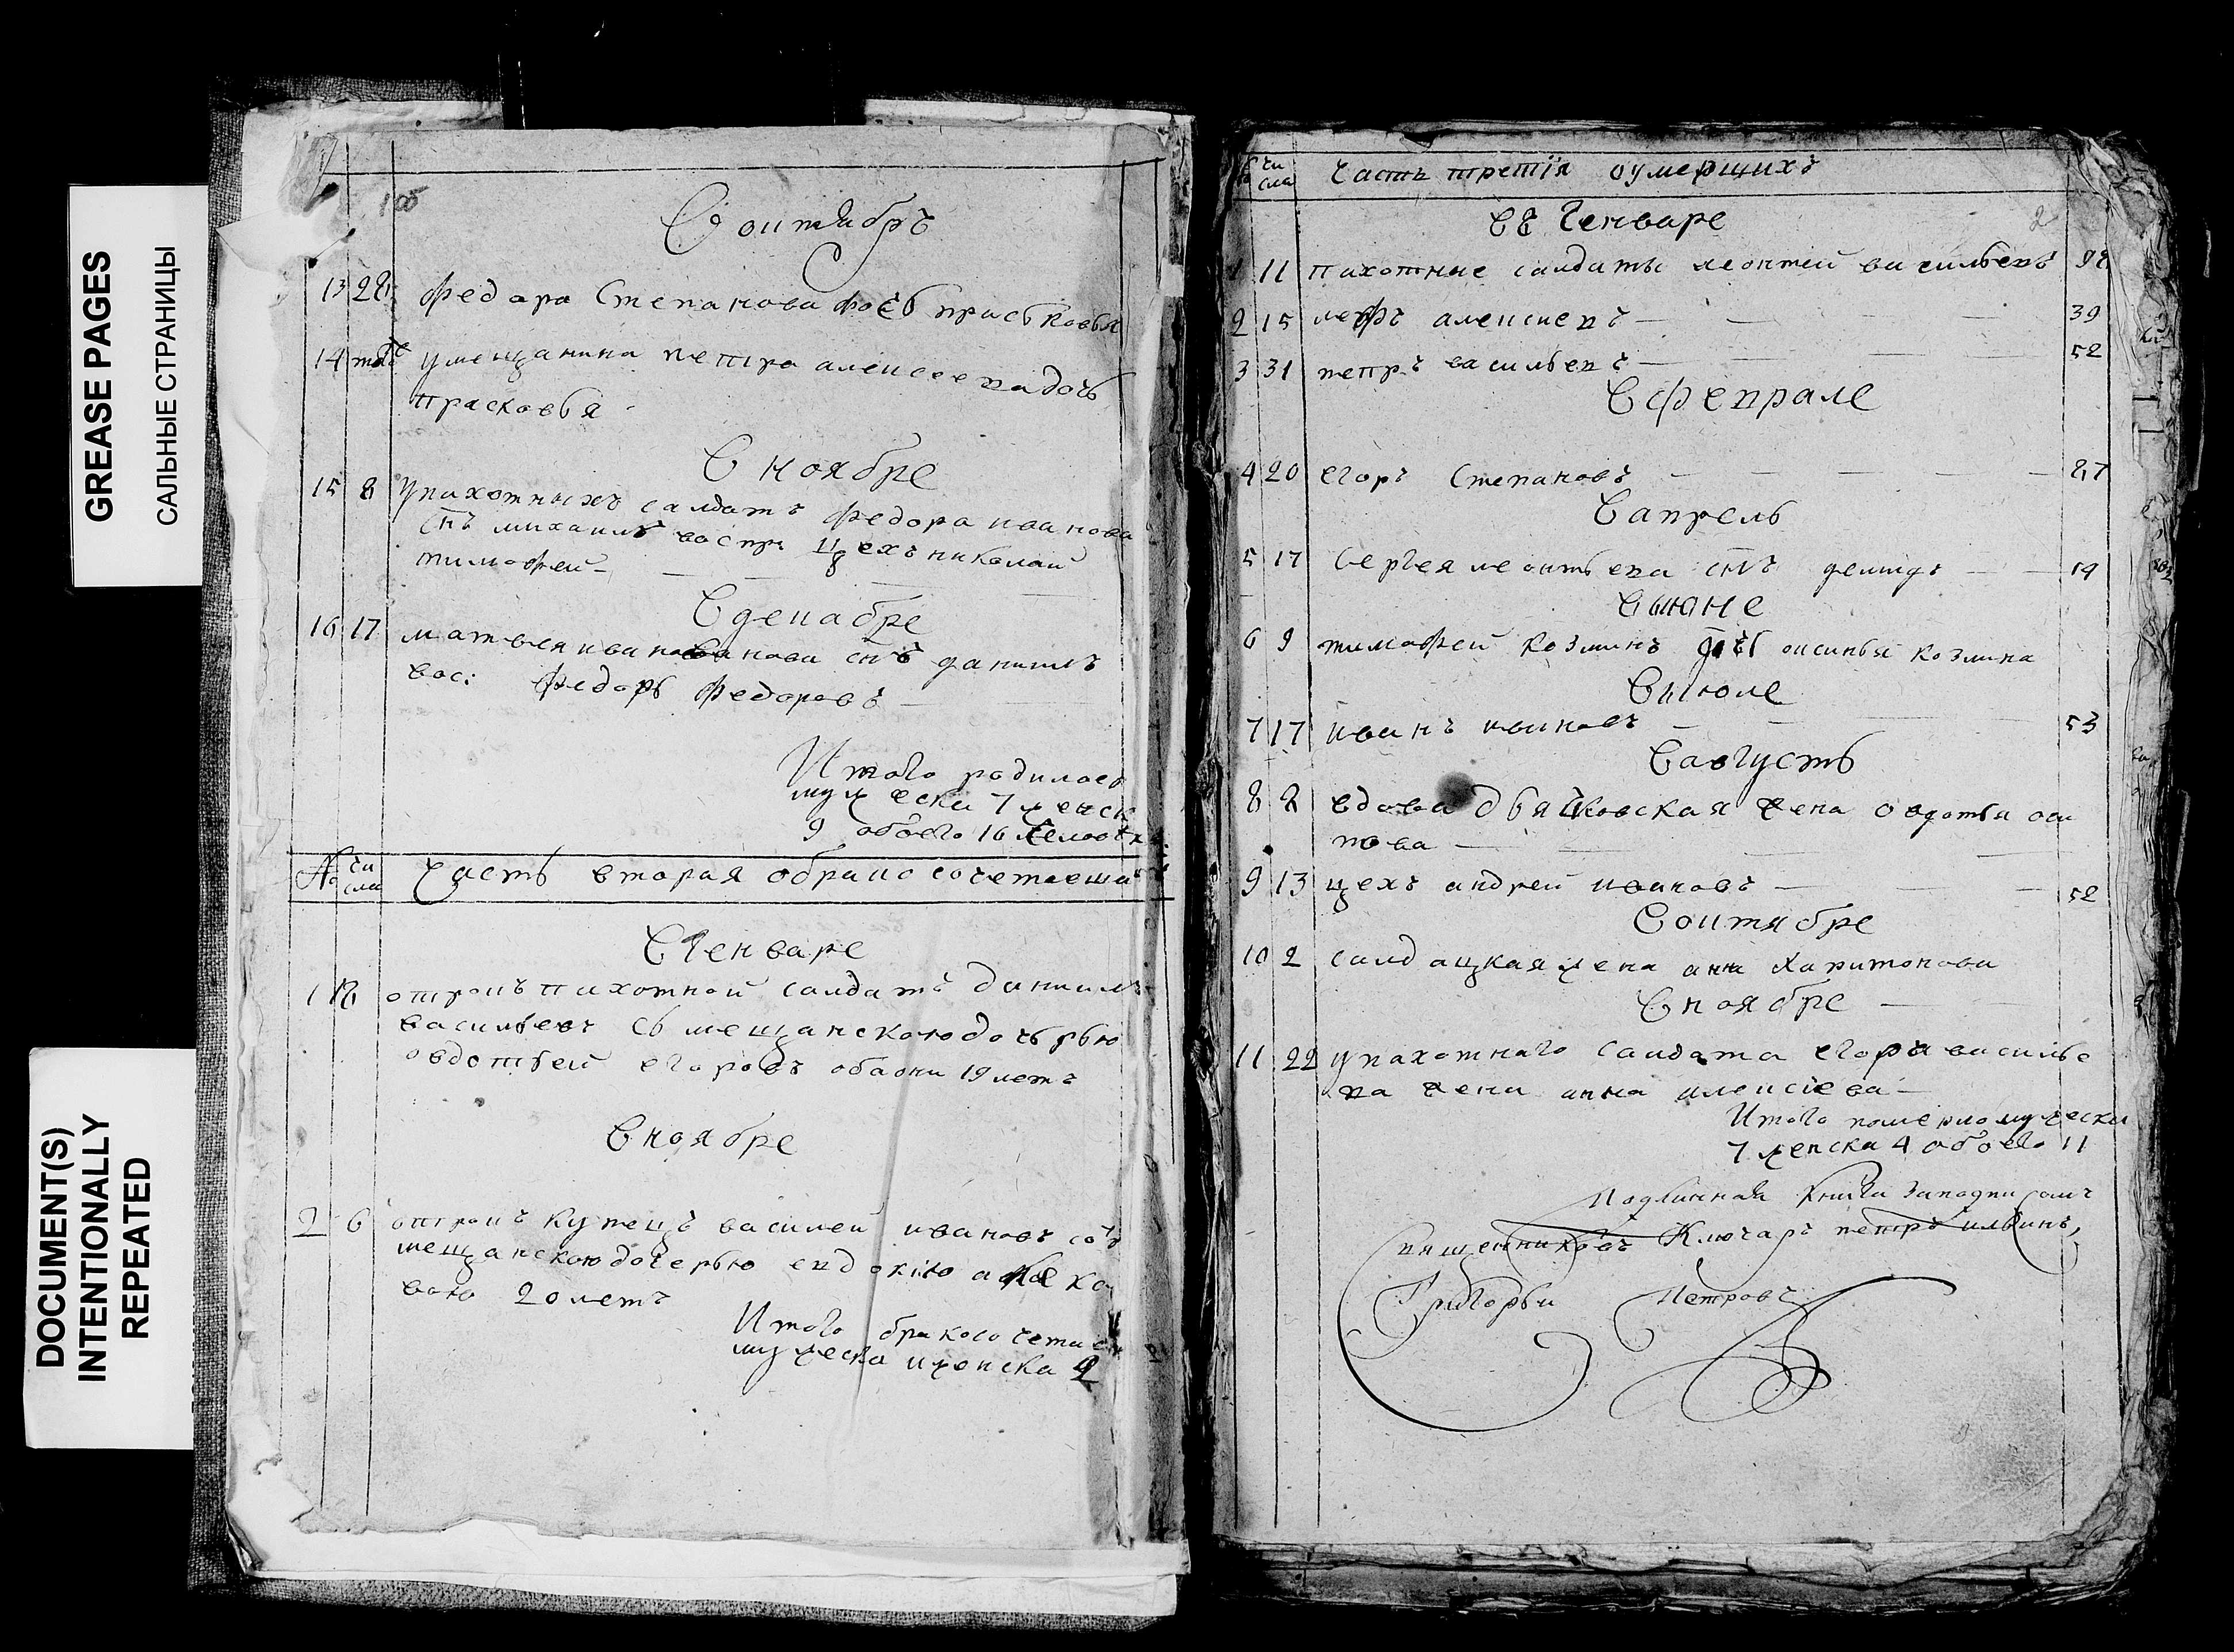 GREASE PAGES
САЛЬНЫЕ СТРАНИЦЫ
DOCUMENT(S)
INTENTIONALLY
REPEATED
100
Соитябръ
13 28 федора Степанова прасковья
14 умещанина петра алексеева дочь
прасковья
С ноябре
15 8 упихотныхъ салдатъ федора иванова
снъ михаилъ воспри цехъ николаи
тимофеи
С декабре
16 17 матвея иванова снъ данилъ
вос: федоръ федоровъ
Итого родилось
мужеска 7 женск
9 обоего 16 человекъ
№ чи сла Часть вторая обракосочетавши
С Генваре
1 отрокъ пихотной салдатъ данилъ
васильевъ съ мещанскою дочерью
овдотьей егоровъ обаони 19 летъ
С ноябре
2 6 отрокъ купецъ василей ивановъ со
мещанскою дочерью евдокию
вою 20 летъ
Итого бракосочета
мужеска и женска 2
чи сла Часть третїя оумерщихъ
Генваре
2
1 11 пихотные салдаты леонтей васильевъ
2 15 алексиевъ 39
3 31 петръ васильевъ 52
С феврале
4 20 егоръ Степановъ 87
С апрель
5 17 Сергея леонтьева снъ демидъ 19
С июне
6 9 тимофей козминъ оксинья козмина
С июле
7 17 иванъ ивановъ 53
С августъ
8 2 вдова дьячковская жена овдотья оси
пова
9 13 цехъ андрей ивановъ 52
Соитябре
10 2 салдацкая жена анна харитонова
С ноябре
11 22 упахотнаго салдата егора василье
ва жена анна алексиева
Итого померло мужеска
7 женска 4 обоего 11
Подлинная книга
священниковъ Ключарь петръ ильинъ,
Григорьи Петровъ